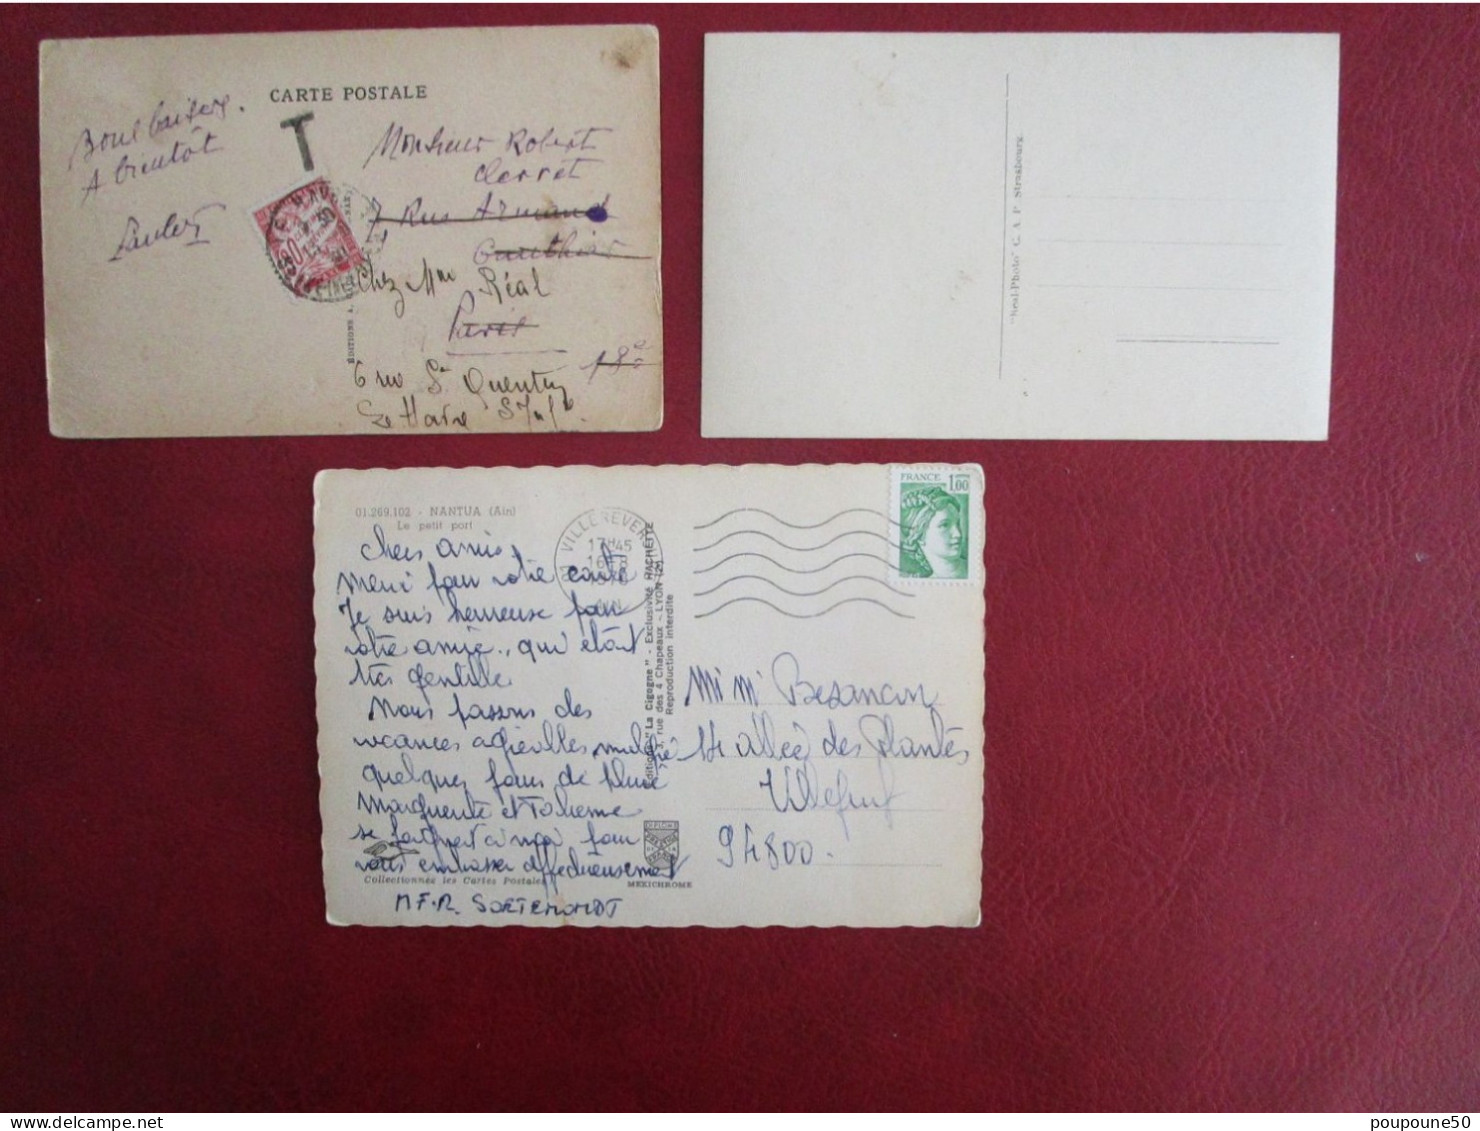 CARTE POSTALE
Bons baisers.
A bientôt
T
Monsieur Robert
7, Rue Armand
Gauthier
Chez Mme Réal
Paris
18e
6 rue St Quentin
Le Havre
ÉDITIONS A.
"Réal-Photo" C. A. P. Strasbourg.
01.269.102 - NANTUA (Ain)
Le petit port
chers amis
Merci pour votre carte
Je suis heureuse pour
votre amie, qui était
très gentille
Nous passons des
vacances agréables malgré
quelques jours de pluie
Marguerite et
se joignent à moi pour
vous embrasser affectueusement
M.F.R.
Collectionnez les Cartes Postales
MEXICHROME
VILLEREVERSURE
17H45
AIN
FRANCE
1,00
Editions "La Cigogne" - Exclusivité HACHETTE
3, rue des 4 Chapeaux - LYON (2e)
Reproduction interdite
Mr Mme Besançon
14 allée des Plantes
Villejuif
94800.
poupoune50